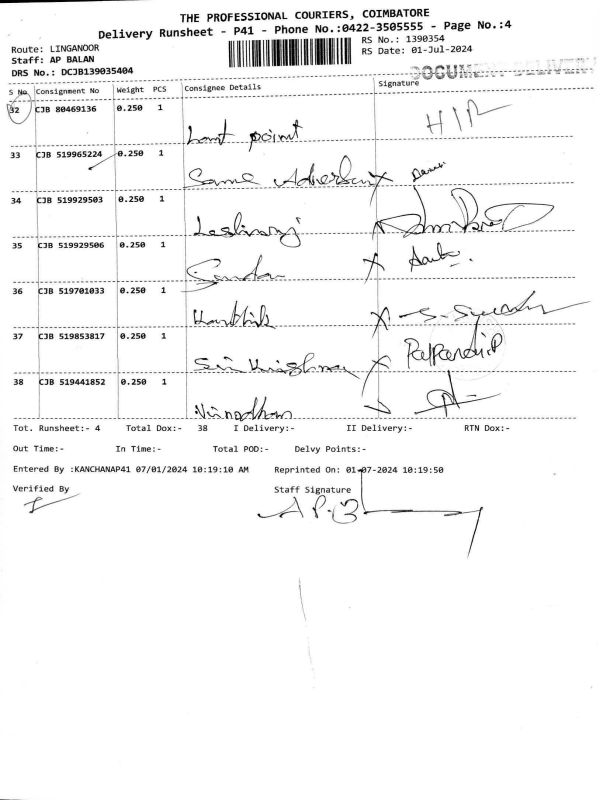 THE PROFESSIONAL COURIERS, COIMBATORE
Delivery Runsheet - P41 - Phone No.:0422-3505555 - Page No.:4
Route: LINGANOOR
RS No.: 1390354
Staff: AP BALAN
RS Date: 01-Jul-2024
DRS No.: DCJB139035404
DOCUMENT DELIVERY
S No. Consignment No Weight PCS Consignee Details Signature
32 CJB 80469136 0.250 1
point
33 CJB 519965224 0.250 1
Same
34 CJB 519929503 0.250 1
35 CJB 519929506 0.250 1
36 CJB 519701033 0.250 1
Karthik
37 CJB 519853817 0.250 1
38 CJB 519441852 0.250 1
Tot. Runsheet:- 4 Total Dox:- 38 I Delivery:- II Delivery:- RTN Dox:-
Out Time:- In Time:- Total POD:- Delvy Points:-
Entered By :KANCHANAP41 07/01/2024 10:19:10 AM Reprinted On: 01-07-2024 10:19:50
Verified By Staff Signature
A P. B